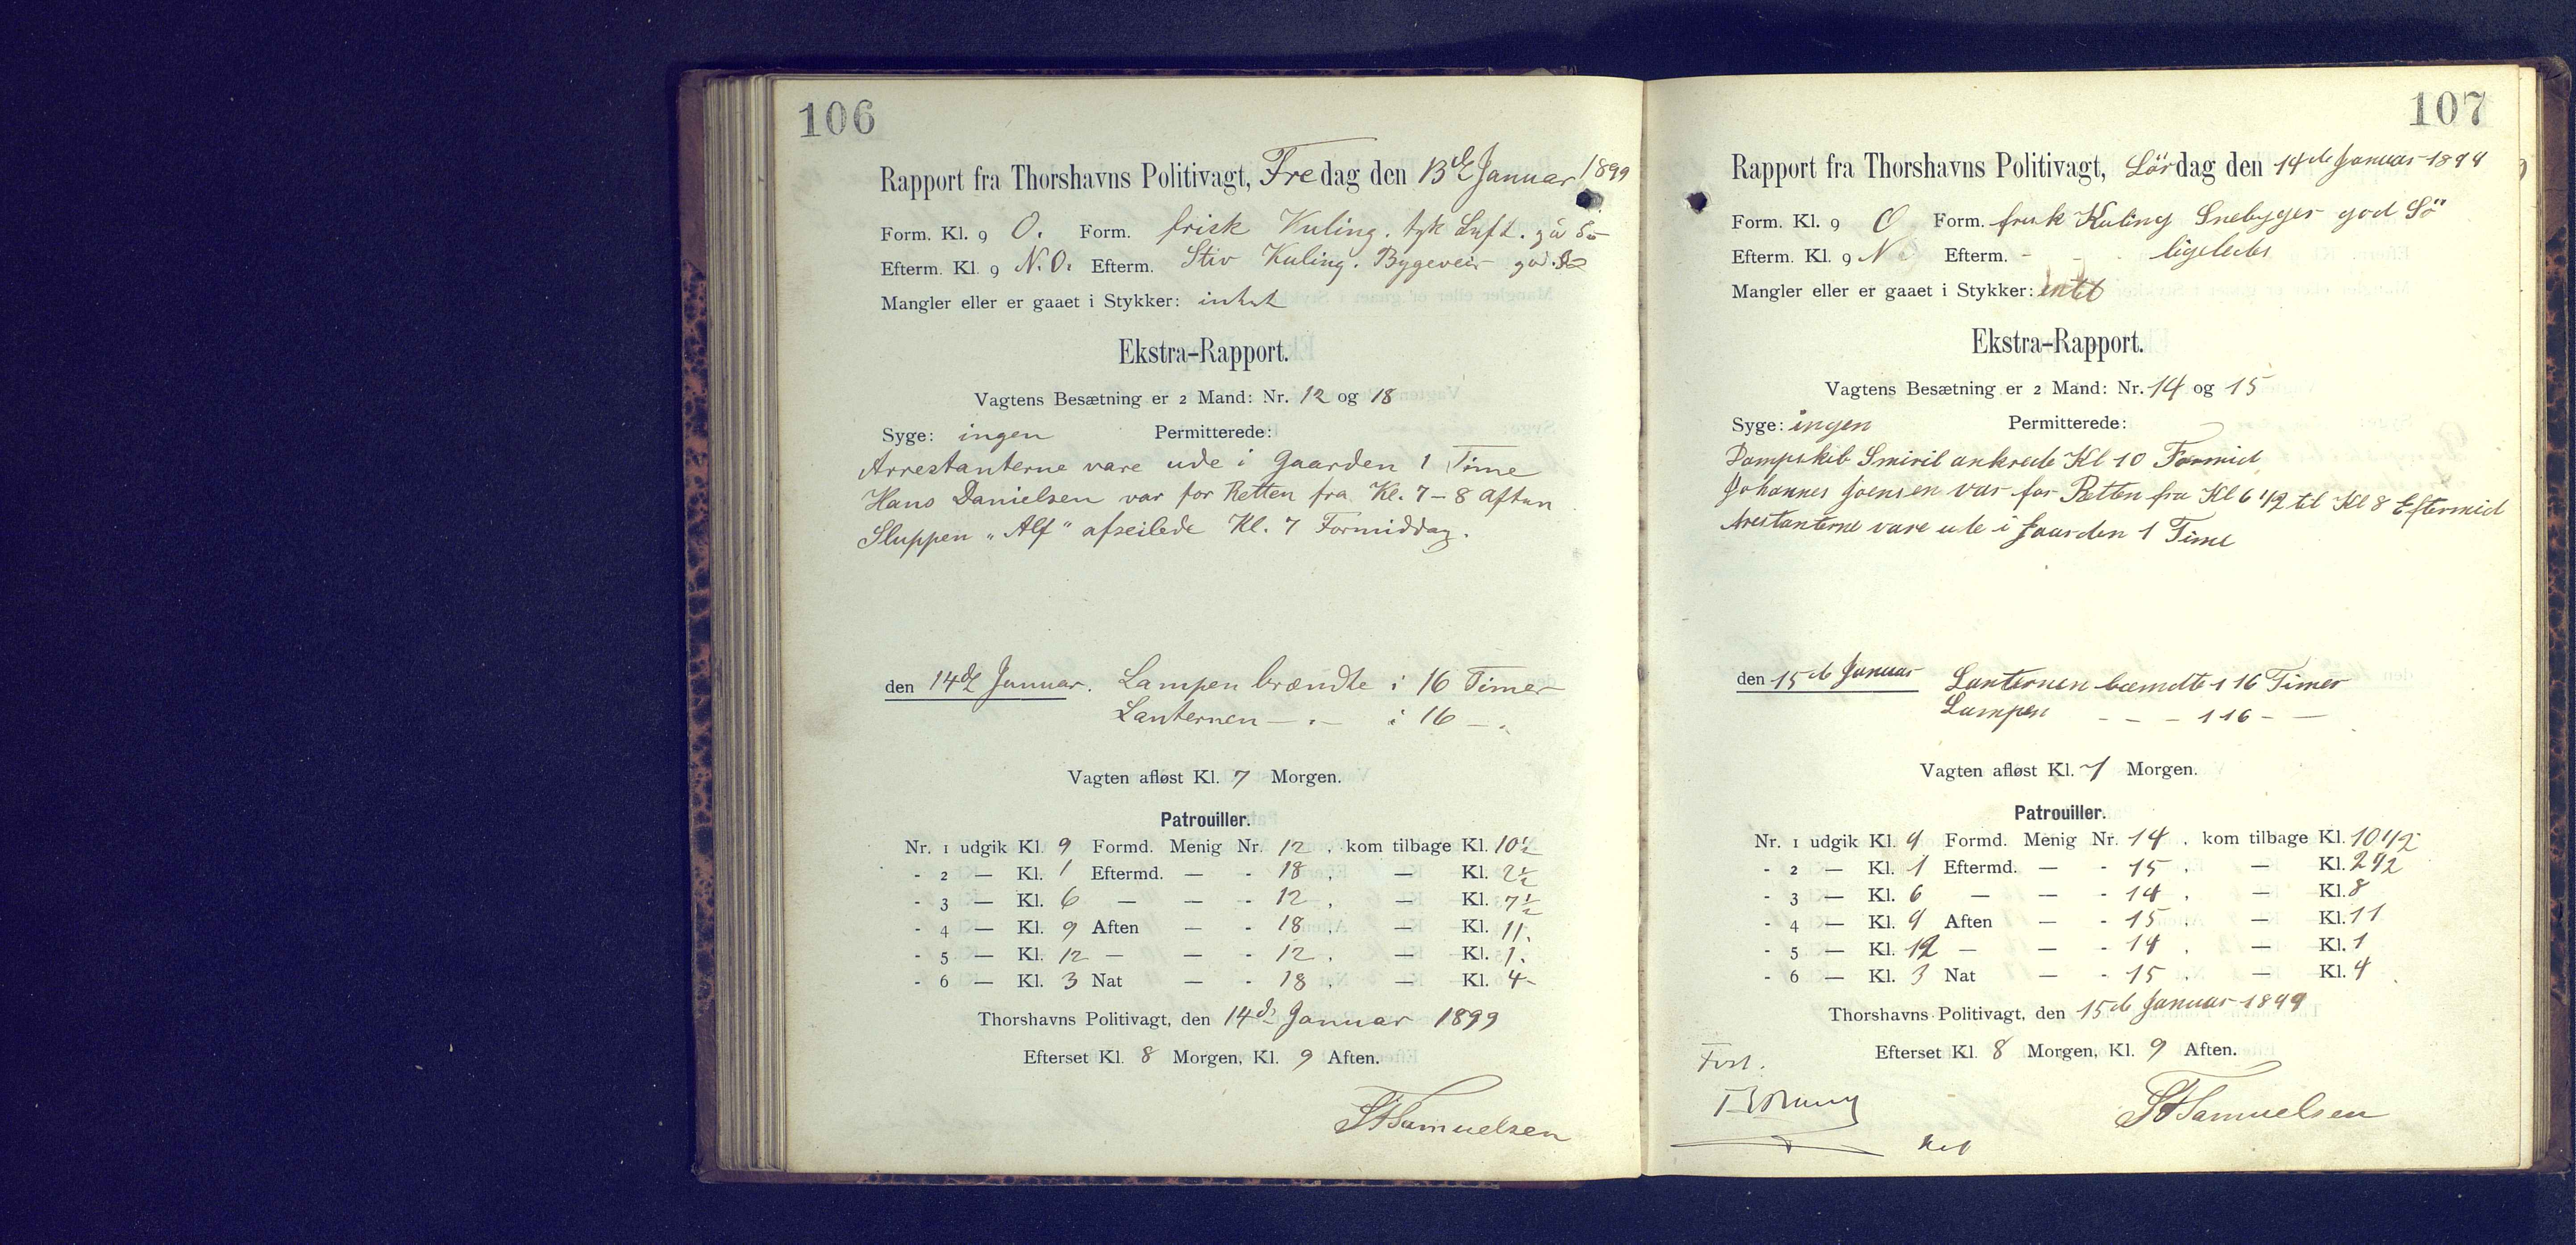 106
Rapport fra Thorshavns Politivagt, Fredag den 13de Januar 1899
Form. Kl. 9 O. Form. frisk Kuling. tyk Luft. gå Sö
Efterm. Kl. 9 N.O. Efterm. Stiv Kuling. Bygeveir god Sö
Mangler eller er gaaet i Stykker: intet
Ekstra-Rapport.
Vagtens Besætning er 2 Mand: Nr. 12 og 18
Syge: ingen Permitterede:
Arrestanterne vare ude i Gaarden 1 Time
Hans Danielsen var for Retten fra Kl. 7-8 Aften
Sluppen „Alf“ afseilede Kl. 7 Formiddag.
den 14de Januar. Lampen brændte i 16 Timer
Lanternen - „ - i 16 - „
Vagten afløst Kl. 7 Morgen.
Patrouiller.
Nr. 1 udgik Kl. 9 Formd. Menig Nr. 12, kom tilbage Kl. 10½
- 2 — Kl. 1 Eftermd. — - 18, — Kl. 2½
- 3 — Kl. 6 — — - 12, — Kl. 7½
- 4 — Kl. 9 Aften — - 18, — Kl. 11.
- 5 — Kl. 12 — — - 12, — Kl. 1.
- 6 — Kl. 3 Nat — - 18, — Kl. 4-
Thorshavns Politivagt, den 14de Januar 1899
Efterset Kl. 8 Morgen, Kl. 9 Aften.
Samuelsen
107
Rapport fra Thorshavns Politivagt, Lördag den 14de Januar 1899
Form. Kl. 9 O Form. frisk Kuling Snebyger god Sö
Efterm. Kl. 9 N Efterm. - - ligeledes
Mangler eller er gaaet i Stykker: intet
Ekstra-Rapport.
Vagtens Besætning er 2 Mand: Nr. 14 og 15
Syge: ingen Permitterede:
Dampskib Smiril ankrede Kl 10 Formid
Johannes Joensen var for Retten fra Kl 6 1/2 til Kl 8 Eftermid
Arestanterne vare ude i Gaarden 1 Time
den 15de Januar Lanternen bændte i 16 Timer
Lampen - - - i 16 - -
Vagten afløst Kl. 7 Morgen.
Patrouiller.
Nr. 1 udgik Kl. 9 Formd. Menig Nr. 14, kom tilbage Kl. 10 1/2
- 2 — Kl. 1 Eftermd. — - 15, — Kl. 2 1/2
- 3 — Kl. 6 — — - 14, — Kl. 8
- 4 — Kl. 9 Aften — - 15, — Kl. 11
- 5 — Kl. 12 — — - 14, — Kl. 1
- 6 — Kl. 3 Nat — - 15, — Kl. 4
Thorshavns Politivagt, den 15de Januar 1899
Efterset Kl. 8 Morgen, Kl. 9 Aften.
Samuelsen